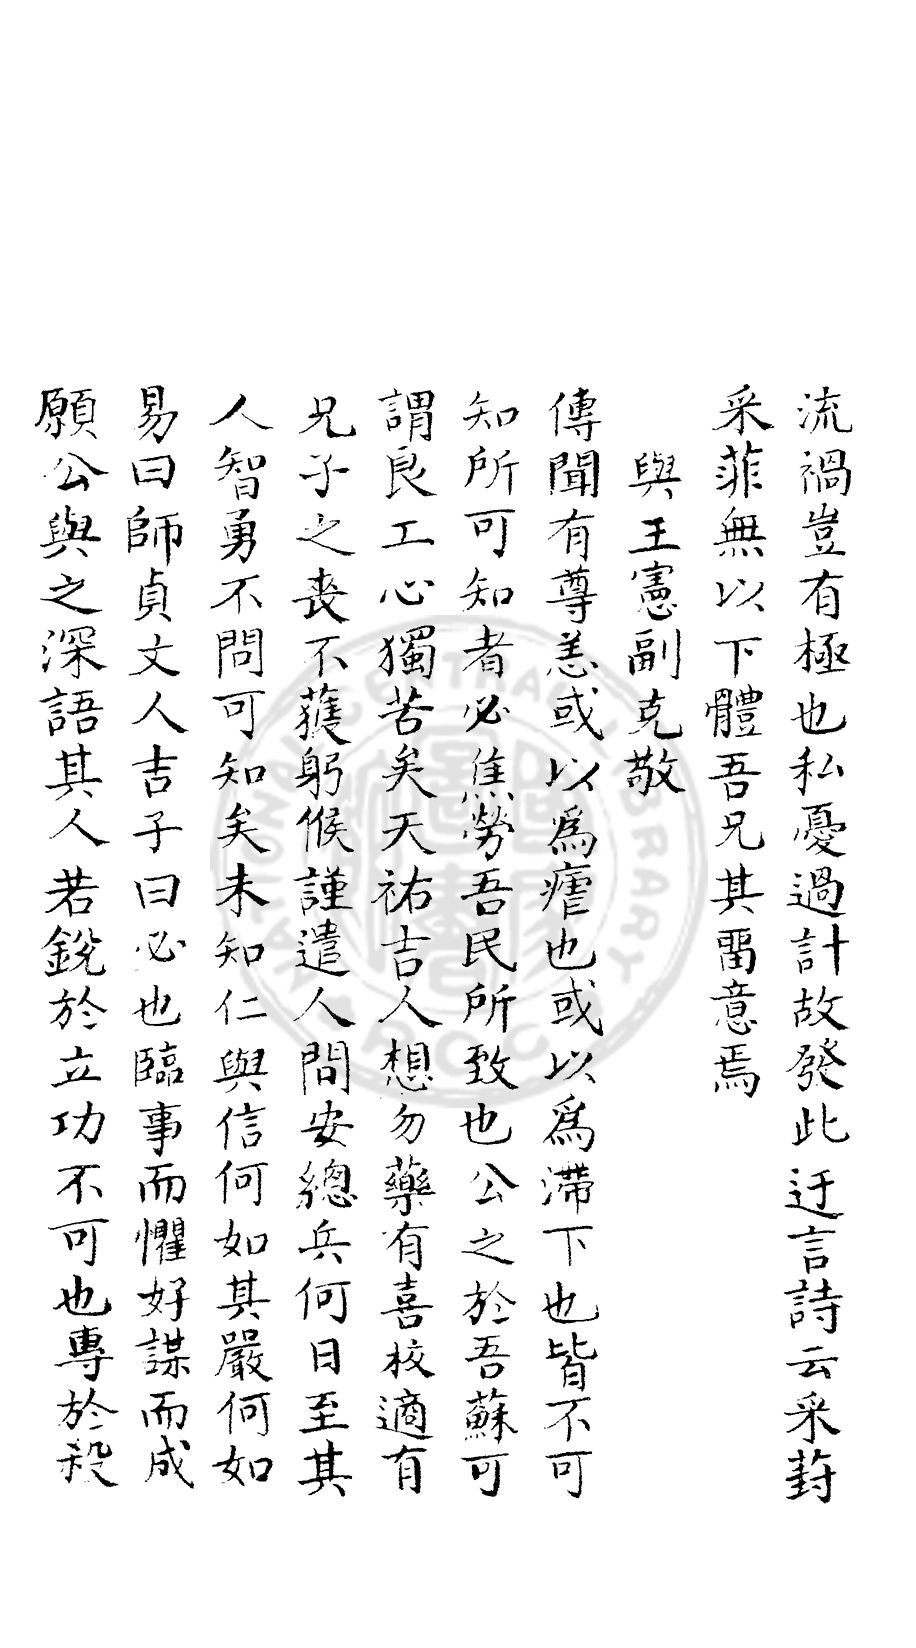 流禍豈有極也私憂過計故發此迂言詩云采葑
采菲無以下體吾兄其畱意焉
與王憲副克敬
傳聞有尊恙或以為瘧也或以為滯下也皆不可
知所可知者必焦勞吾民所致也公之於吾蘇可
謂良工心獨苦矣天祐吉人想勿藥有喜校適有
兄子之喪不獲躬候謹遣人問安總兵何日至其
人智勇不問可知矣未知仁與信何如其嚴何如
易曰師貞丈人吉子曰必也臨事而懼好謀而成
願公與之深語其人若銳於立功不可也專於殺
NATIONAL CENTRAL LIBRARY R.O.C.